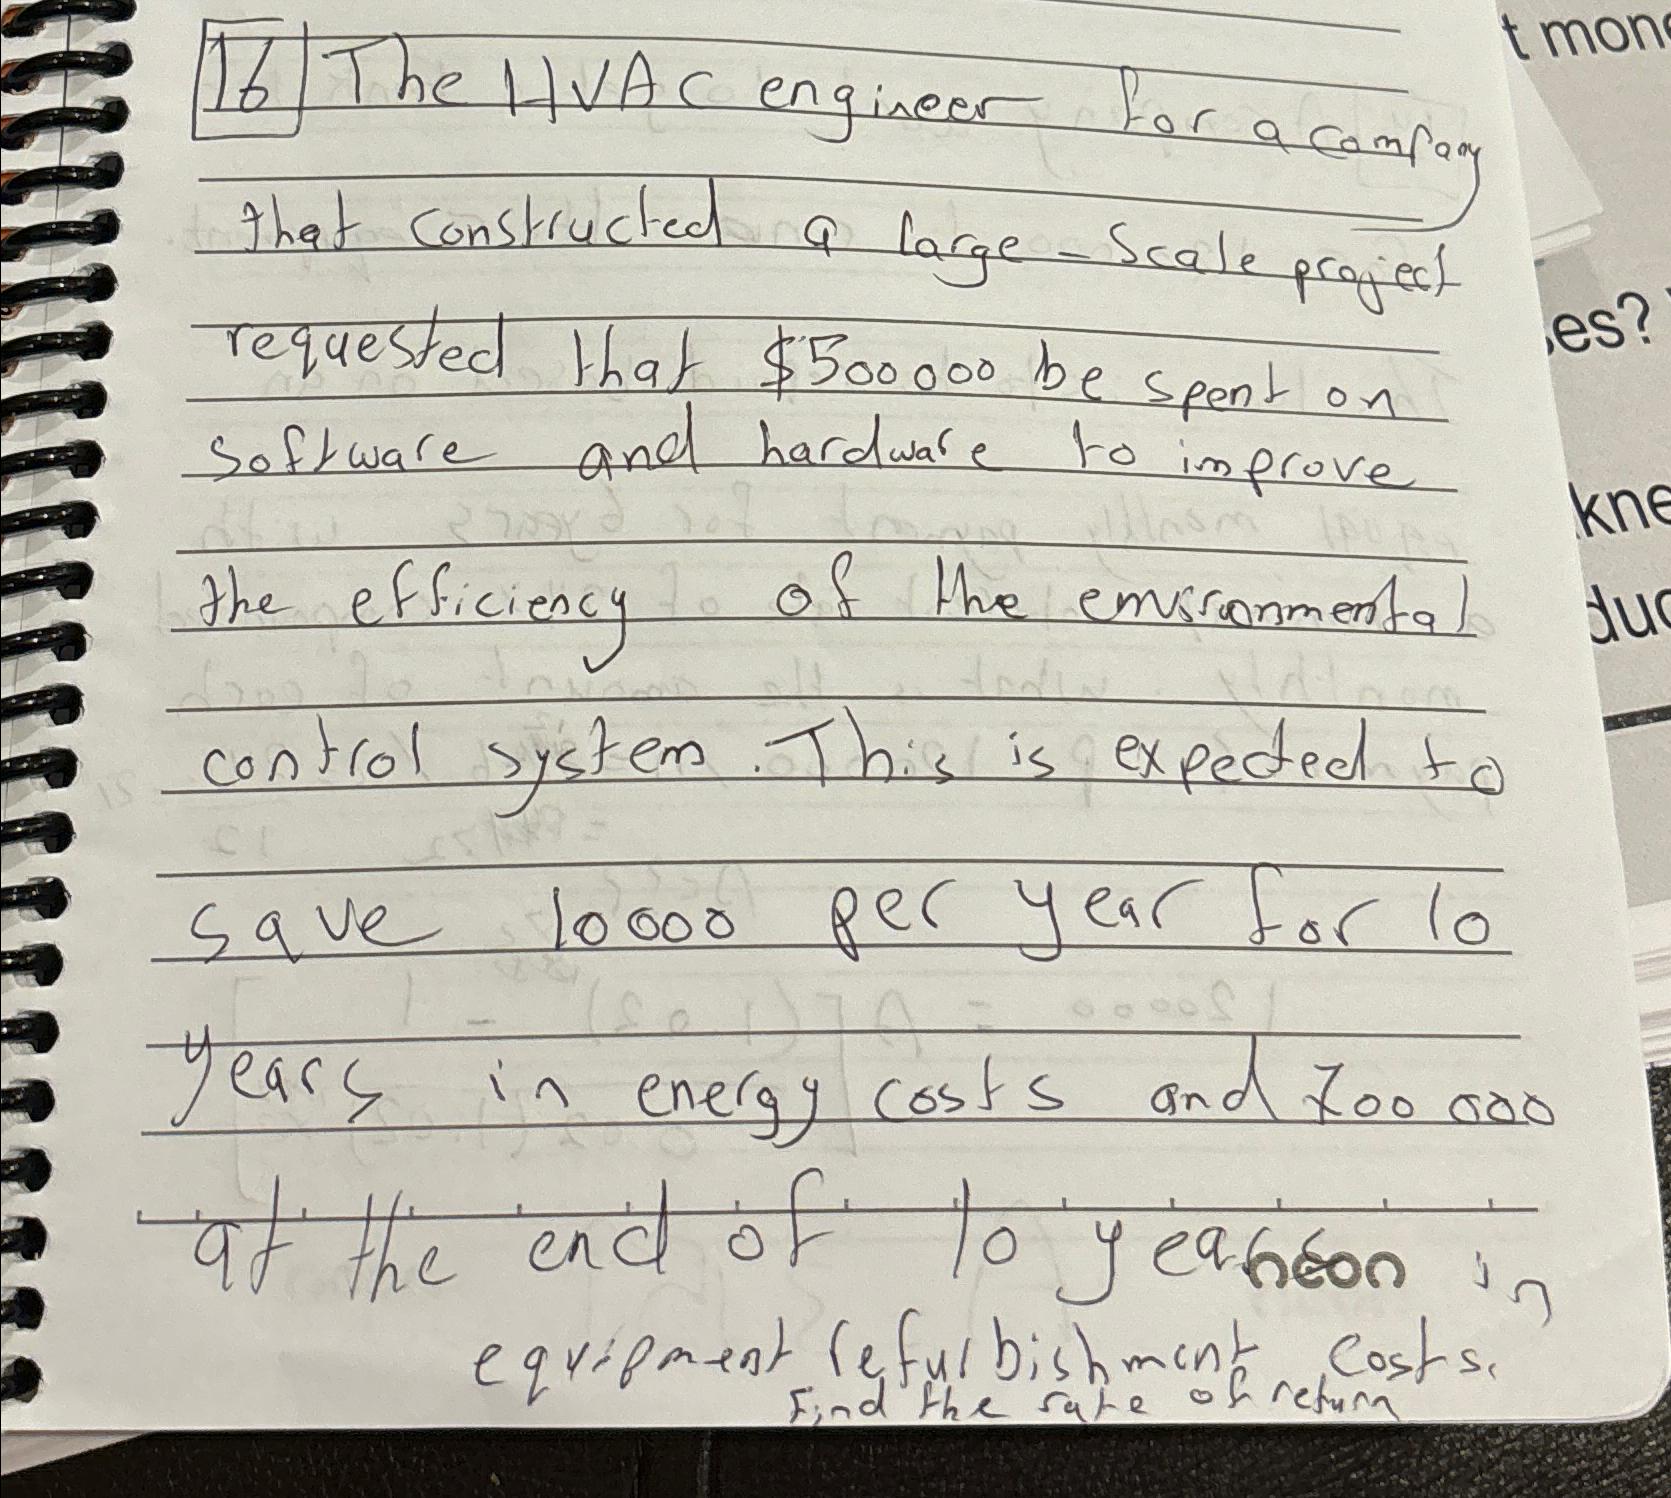 16 The HVAC engineer for a company
that constructed a large-scale project
requested that $500000 be spent on
software and hardware to improve
the efficiency of the environmental
control system. This is expected to
save 10000 per year for 10
years in energy costs and 700000
at the end of 10 years in
neon
equipment refurbishment costs.
Find the rate of return
t mon
es?
kne
duc